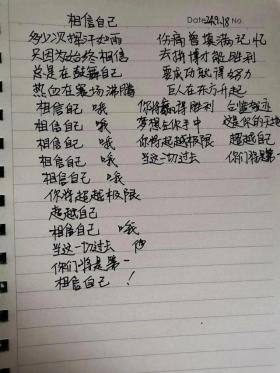 相信自己
Date 24.9.18 No.
多少次挥汗如雨 伤痛曾填满记忆
只因为始终相信 去拼搏才能胜利
总是在鼓舞自己 要成功就得努力
热血在赛场沸腾 巨人在东方升起
相信自己 哦 你将赢得胜利
相信自己 哦 梦想在你手中 这是你的天地
相信自己 哦 你将超越极限 超越自己
相信自己 哦 当这一切过去 你们将是第一
相信自己 哦
你将超越极限
超越自己
相信自己 哦
当这一切过去
你们将是第一
相信自己!